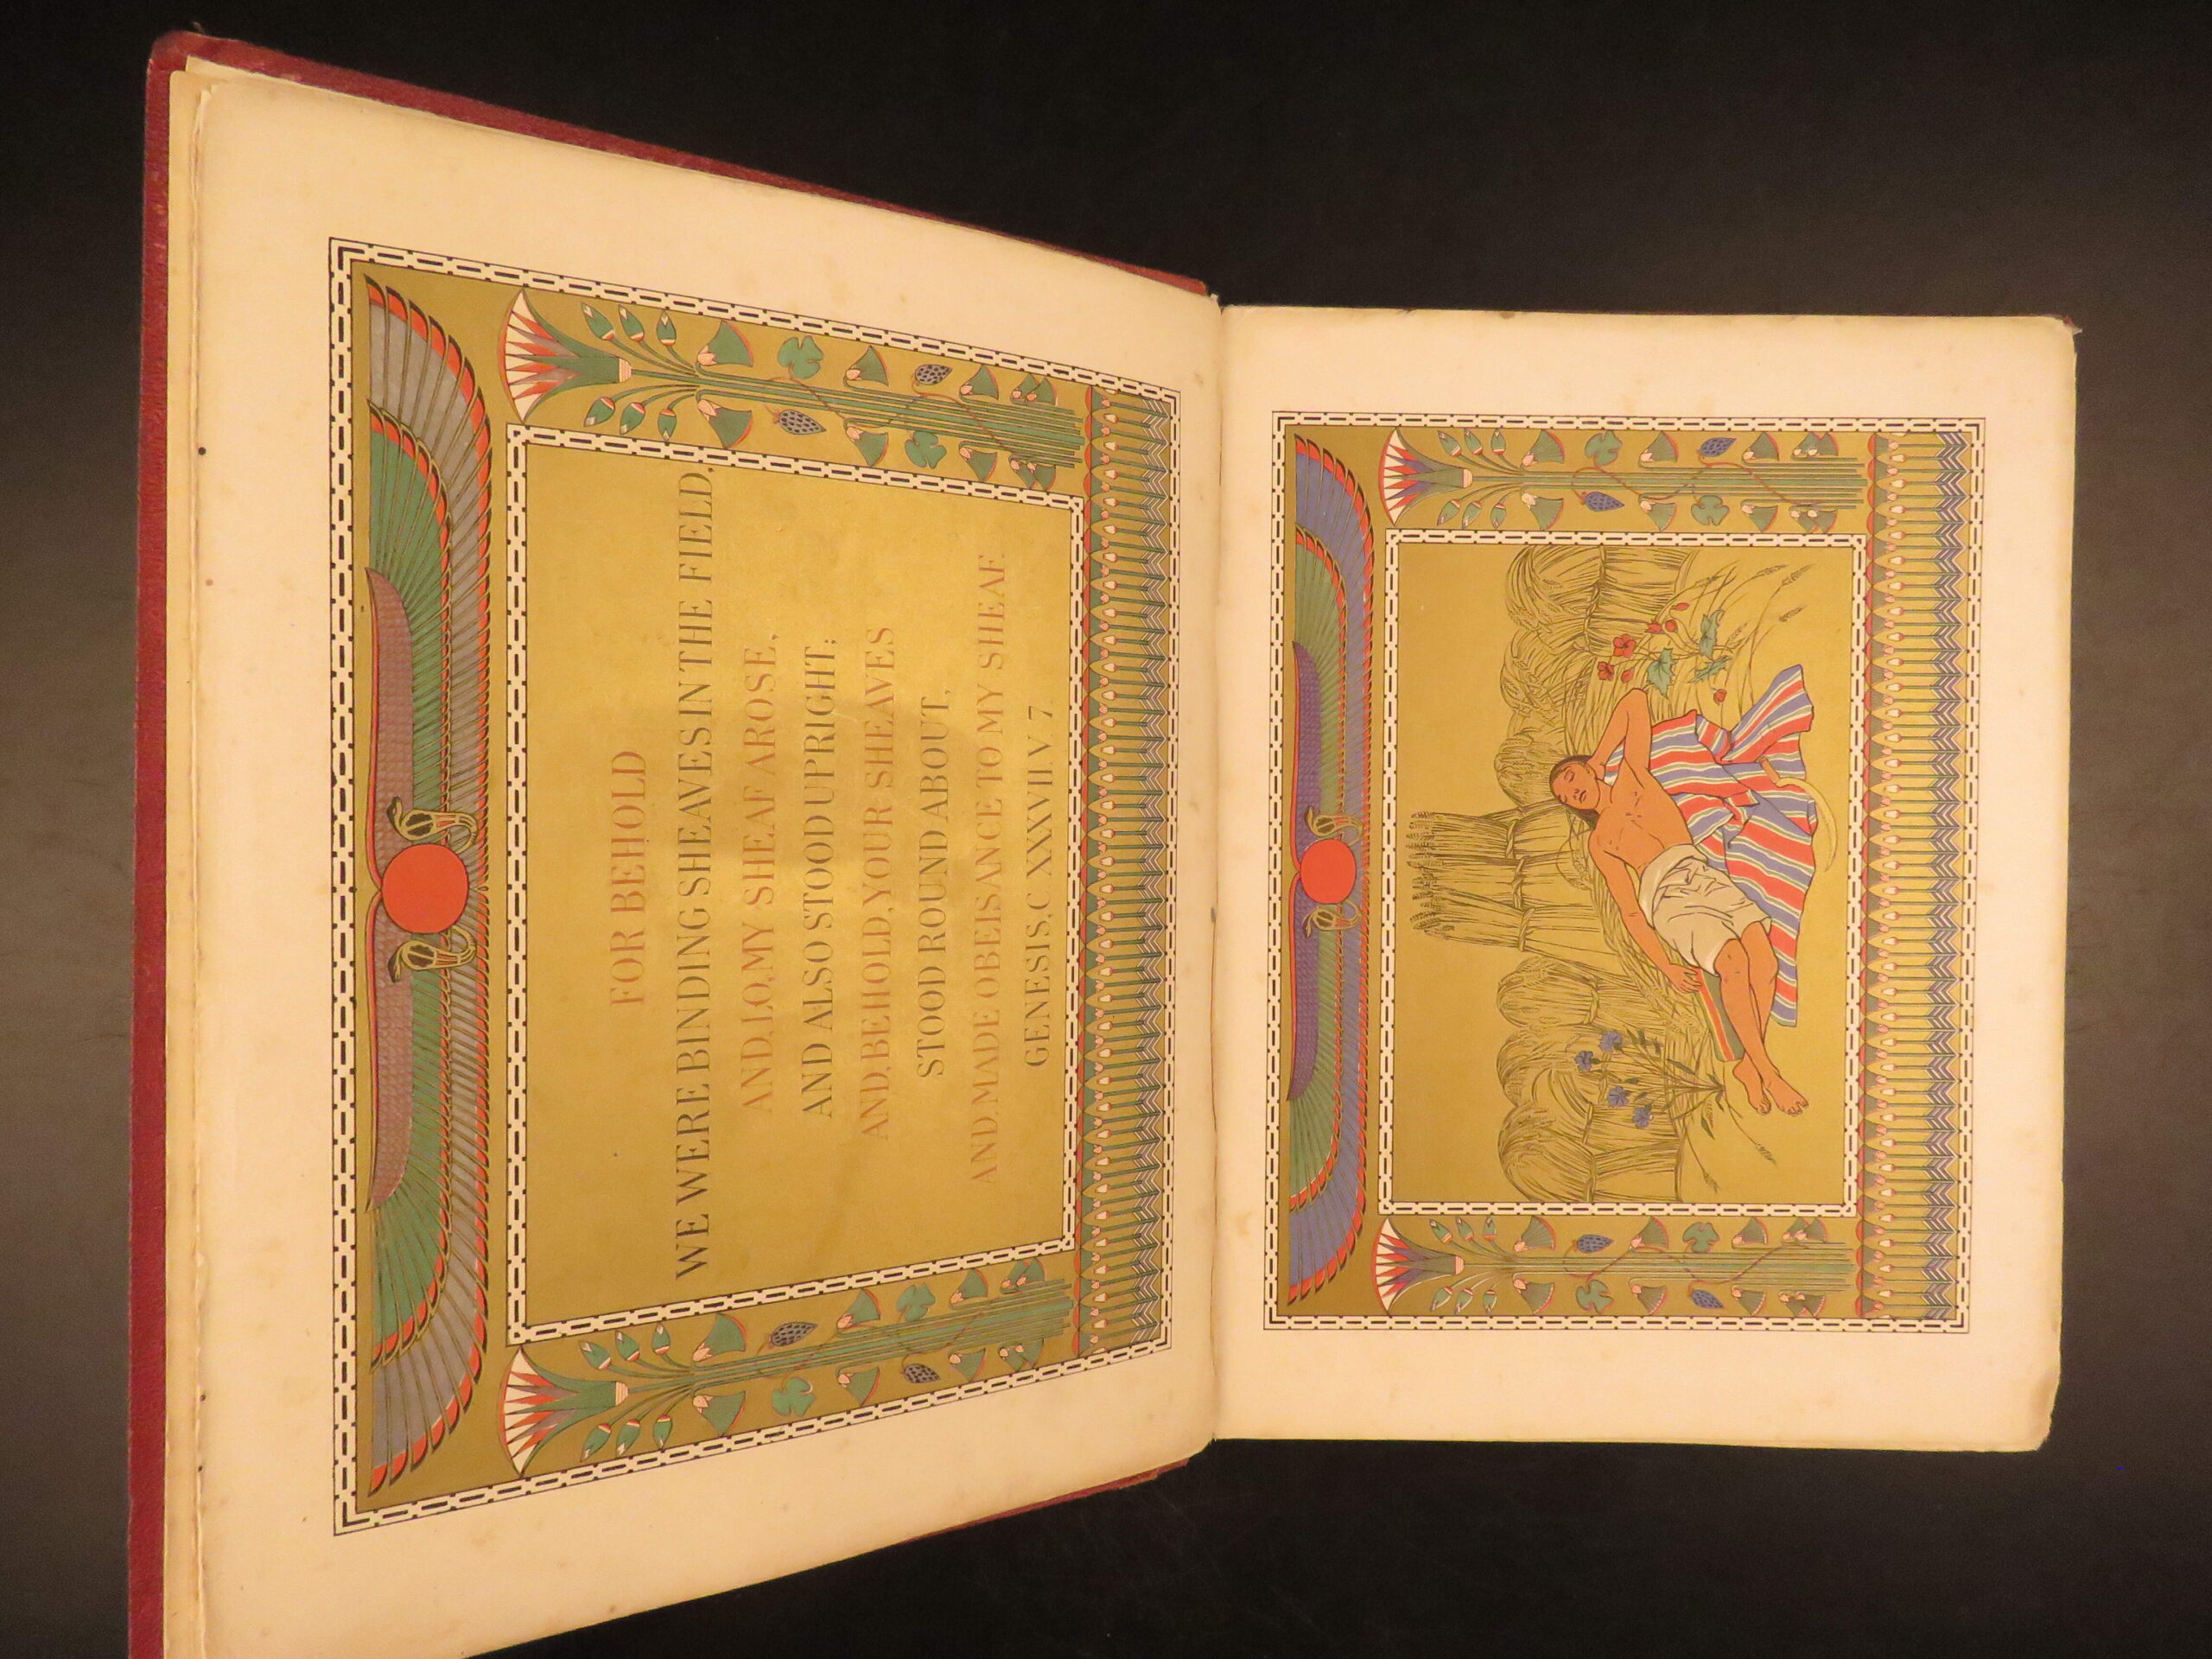 FOR BEHOLD
WE WERE BINDING SHEAVES IN THE FIELD,
AND, LO, MY SHEAF AROSE,
AND ALSO STOOD UPRIGHT;
AND, BEHOLD, YOUR SHEAVES
STOOD ROUND ABOUT,
AND MADE OBEISANCE TO MY SHEAF.
GENESIS, C XXXVII. V 7